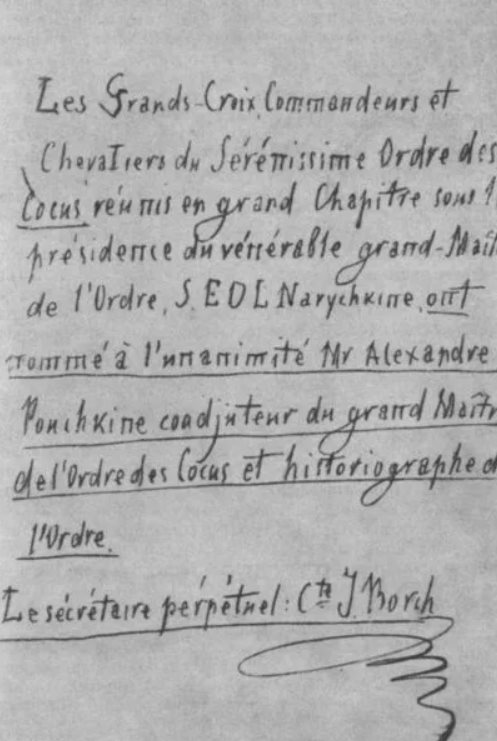 Les Grands-Croix, Commandeurs et
Chevaliers du Sérénissime Ordre des
Cocus réunis en grand Chapitre sous l
présidence du vénérable grand-Maît
de l'Ordre, S. E. D. L. Narychkine, ont
nommé à l'unanimité Mr Alexandre
Pouchkine coadjuteur du grand Maîtr
de l'Ordre des Cocus et historiographe d
l'Ordre.
Le sécrétaire perpétuel: Cte J. Borch